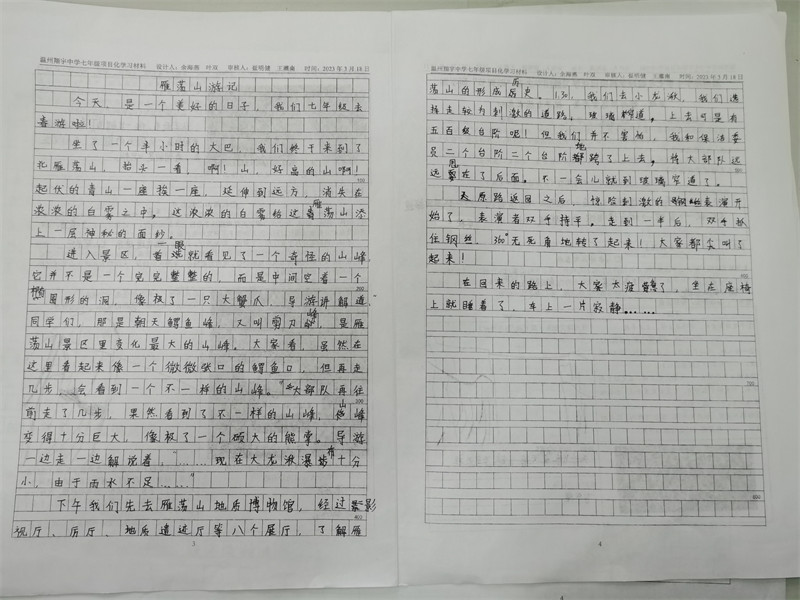 温州翔宇中学七年级项目化学习材料 设计人：余海燕 叶琼 审核人：翟明健 王瓛南 时间：2023年3月18日
雁荡山游记
今天，是一个美好的日子，我们七年级去
春游啦！
坐了一个半小时的大巴，我们终于来到了
北雁荡山，抬头一看，啊！山，好高的山啊！
起伏的青山一座挨一座，延伸到远方，消失在
浓浓的白雾之中。这浓浓的白雾给这雁荡山添
上一层神秘的面纱。
进入景区，一眼就看见了一个奇怪的山峰，
它并不是一个完完整整的，而是中间空着一个
椭圆形的洞，像极了一只大蟹爪，导游讲解道
同学们，那是朝天鳄鱼峰，又叫剪刀峰，是雁
荡山景区里变化最大的山峰。大家看，虽然在
这里看起来像一个微微张口的鳄鱼口，但再走
几步，会看到一个不一样的山峰。”大部队再往
前走了几步，果然看到了不一样的山峰，山峰
变得十分巨大，像极了一个硕大的熊掌。导游
一边走一边解说着，“……现在大龙湫瀑布十分
小，由于雨水不足……”
下午我们先去雁荡山地质博物馆，经过影
视厅、历厅、地质遗迹厅等八个展厅，了解雁
3
温州翔宇中学七年级项目化学习材料 设计人：余海燕 叶琼 审核人：翟明健 王瓛南 时间：2023年3月18日
荡山的形成历史。1:30，我们去小龙湫，我们选
择走较为刺激的道路，玻璃栈道。上去可是有
五百级台阶呢！但我们并不害怕，我和保洁委
员二个台阶二个台阶地跨了上去，将大部队远
远甩在了后面。不一会儿就到玻璃栈道了。
原路返回之后，惊险刺激的钢丝表演开
始了，表演者双手持平，走到一半后，双手抓
住钢丝，360°无死角地转了起来！大家都尖叫了
起来！
在回来的路上，大家太疲惫了，坐在座椅
上就睡着了，车上一片寂静……
4